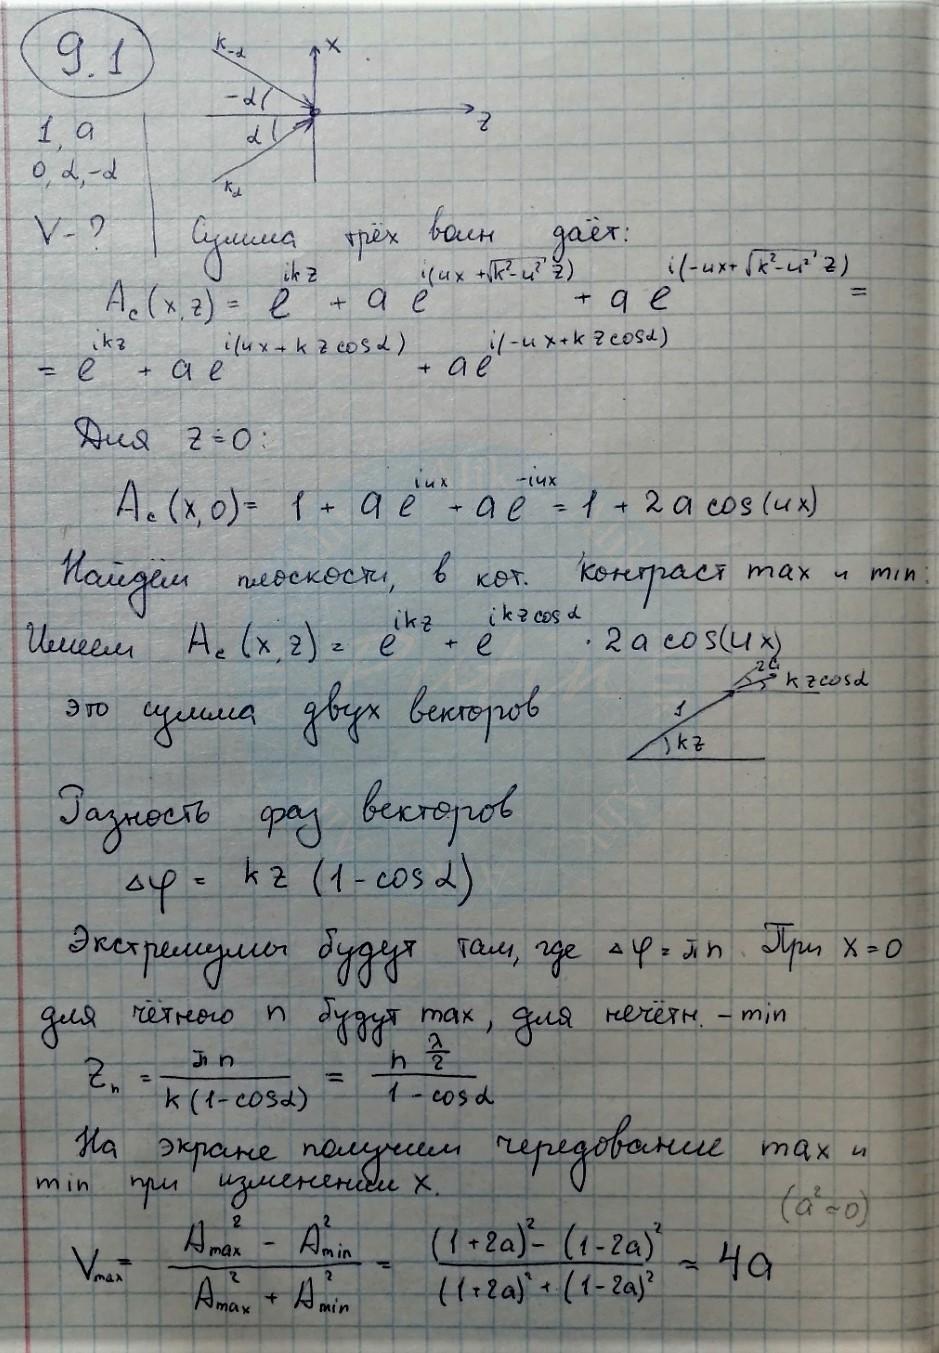 9.1
k₋α
x
-α
α
z
kα
1, a
0, α, -α
V - ?
Сумма трёх волн даёт:
A_c(x,z) = e^{ikz} + a e^{i(ux + √(k²-u²) z)} + a e^{i(-ux + √(k²-u²) z)} =
= e^{ikz} + a e^{i(ux + kz cosα)} + a e^{i(-ux + kz cosα)}
Для z=0:
A_c(x,0) = 1 + a e^{iux} + a e^{-iux} = 1 + 2a cos(ux)
Найдём плоскости, в кот. контраст max и min:
Имеем A_c(x,z) = e^{ikz} + e^{ikz cosα} · 2a cos(ux)
это сумма двух векторов
2a
kz cosα
1
kz
Разность фаз векторов
Δφ = kz (1 - cosα)
Экстремумы будут там, где Δφ = πn. При x=0
для чётного n будут max, для нечётн. - min
z_n = πn / k(1-cosα) = n λ/2 / (1-cosα)
На экране получим чередование max и
min при изменении x.
(a² ≈ 0)
V_max = (A²_max - A²_min) / (A²_max + A²_min) = ((1+2a)² - (1-2a)²) / ((1+2a)² + (1-2a)²) ≈ 4a